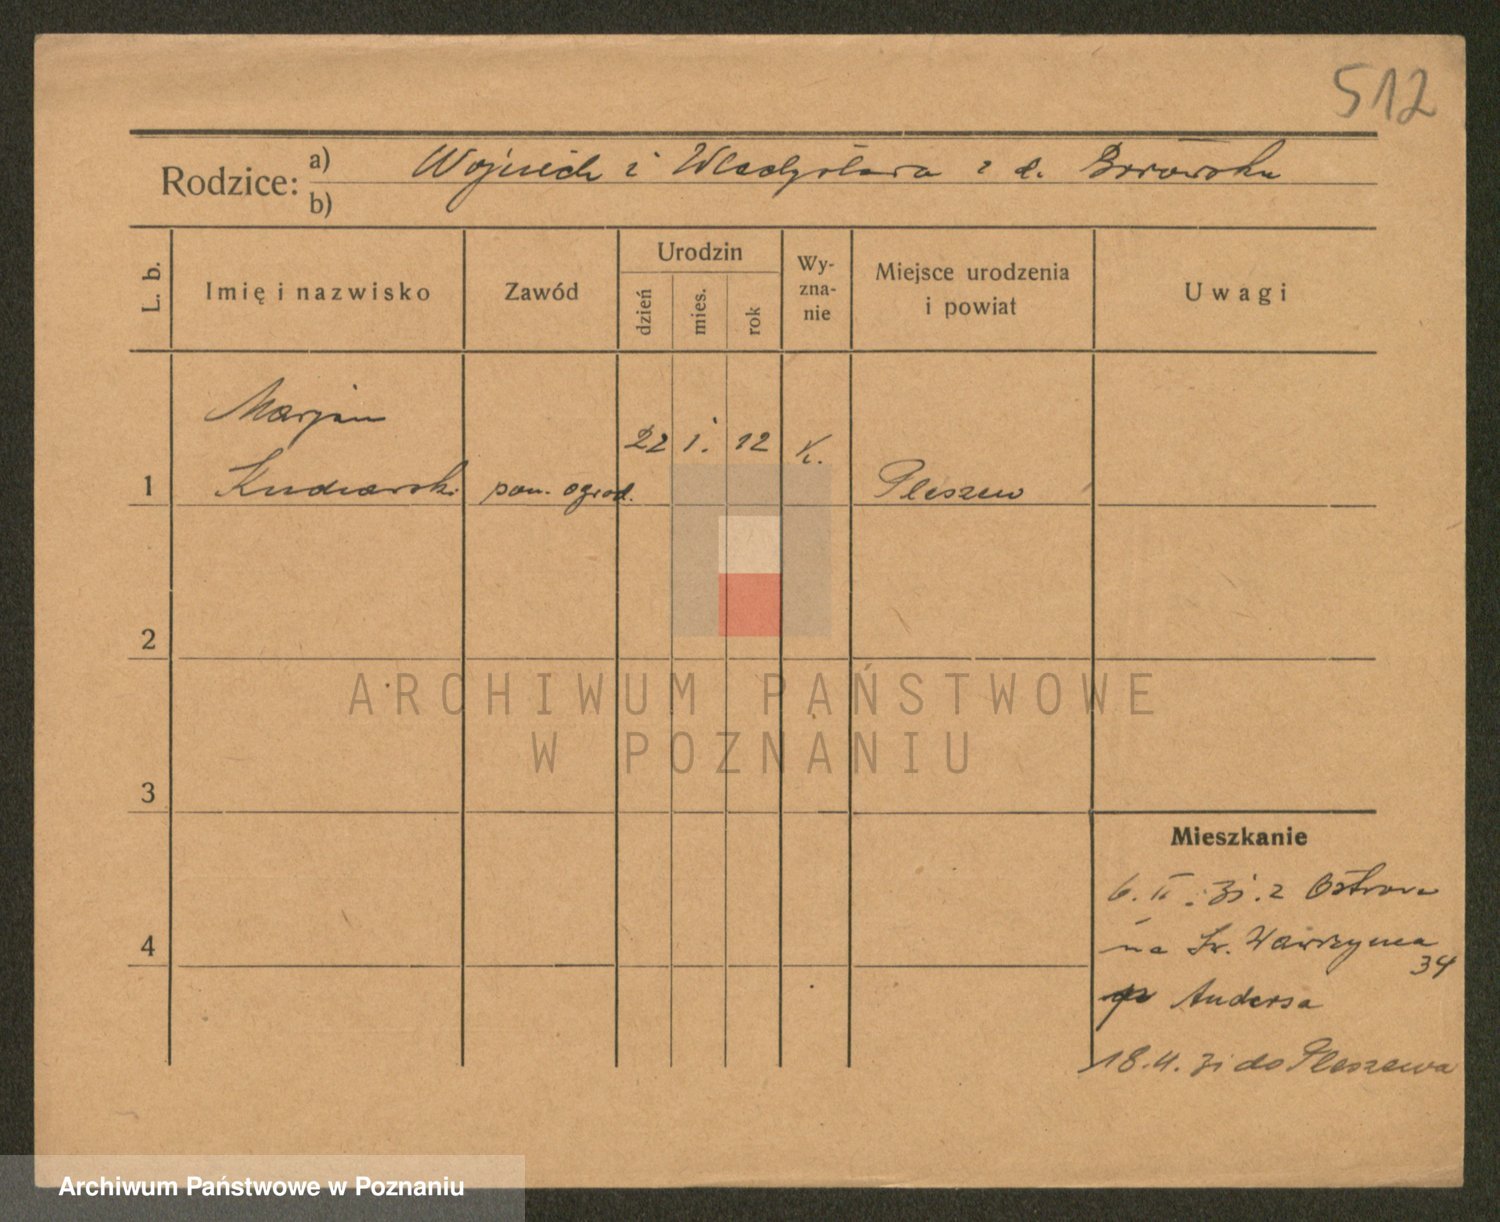 512
Rodzice: a) Wojciech i Władysława z d. Borowska
b)
L. b. Imię i nazwisko Zawód Urodzin dzień mies. rok Wy-zna-nie Miejsce urodzenia i powiat Uwagi
Marjan
22 1. 12 K.
1 pom. ogrod. Pleszew
2
3
4
Mieszkanie
6. II. 31. z Ostrowa
na Św. Wawrzyńca
34
Andersa
18.4. 31 do Pleszewa
ARCHIWUM PAŃSTWOWE
W POZNANIU
Archiwum Państwowe w Poznaniu